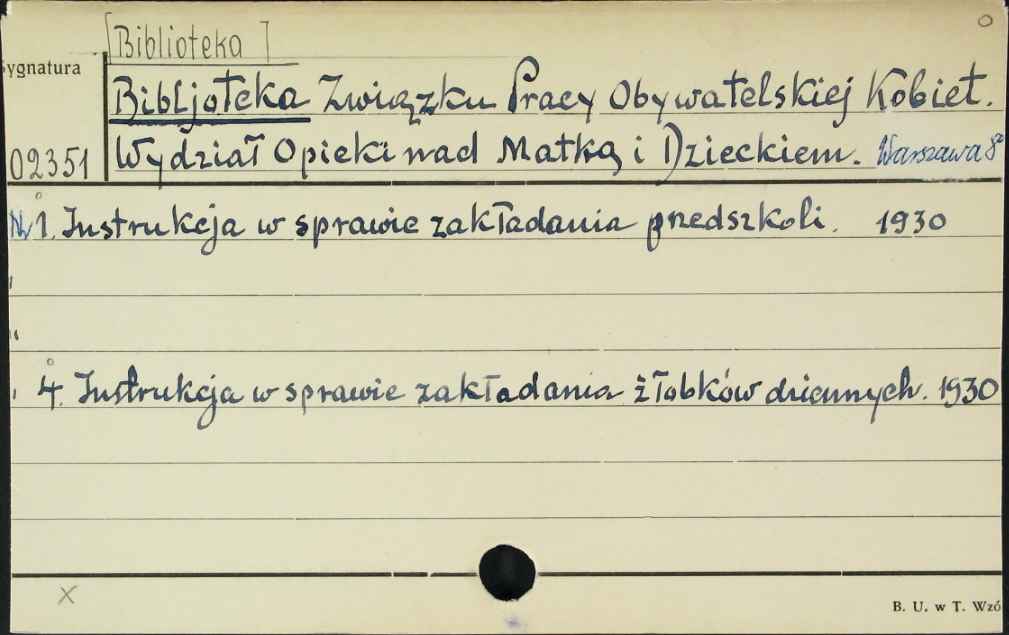 [Biblioteka]
Sygnatura
Bibljoteka Związku Pracy Obywatelskiej Kobiet.
02351 Wydział Opieki nad Matką i Dzieckiem. Warszawa 8°
Nr 1. Instrukcja w sprawie zakładania przedszkoli. 1930
" 4. Instrukcja w sprawie zakładania żłobków dziennych. 1930
x
B. U. w T. Wzó